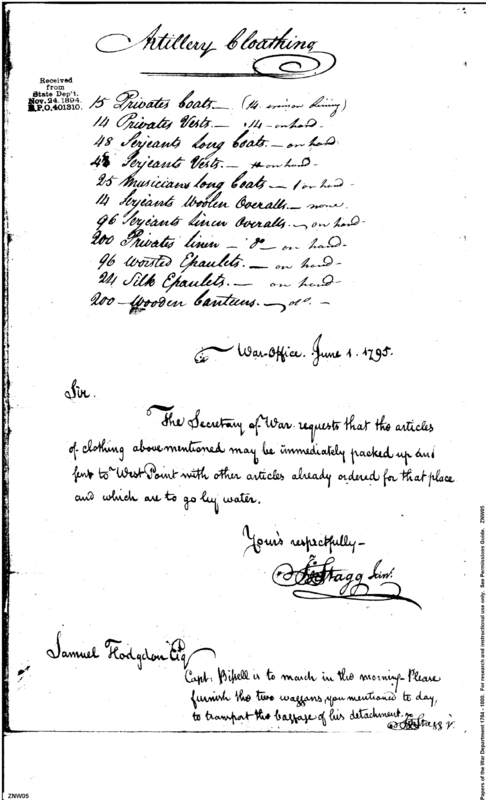 Artillery Cloathing
Received
from
State Dep't.
Nov. 24, 1894.
R.P.O. 401310.
15 Privates Coats — (14 lining)
14 Privates Vests — 14 on hand -
48 Serjeants Long Coats — on hand
48 Serjeant Vests — on hand -
25 Musicians long Coats — 1 on hand -
14 Serjeants Woolen Overalls — none.
96 Serjants Linen Overalls — on hand -
200 Privates linen — do — on hand -
96 Worsted Epaulets. — on hand -
24 Silk Epaulets. — on hand -
200 — Wooden Canteens. — do. -
War-Office. June 1. 1795.
Sir.
The Secretary of War requests that the articles
of clothing above mentioned may be immediately packed up and
sent to West Point with other articles already ordered for that place
and which are to go by water.
Your's respectfully —
Jno Stagg Junr.
Samuel Hodgdon Esq
Capt. Bissell is to march in the morning — Please
furnish the two waggons, you mentioned to day,
to transport the baggage of his detachment.
Jno Stagg Jr.
Papers of the War Department 1784 - 1800. For research and instructional use only. See Permissions Guide. ZNW05
ZNW05